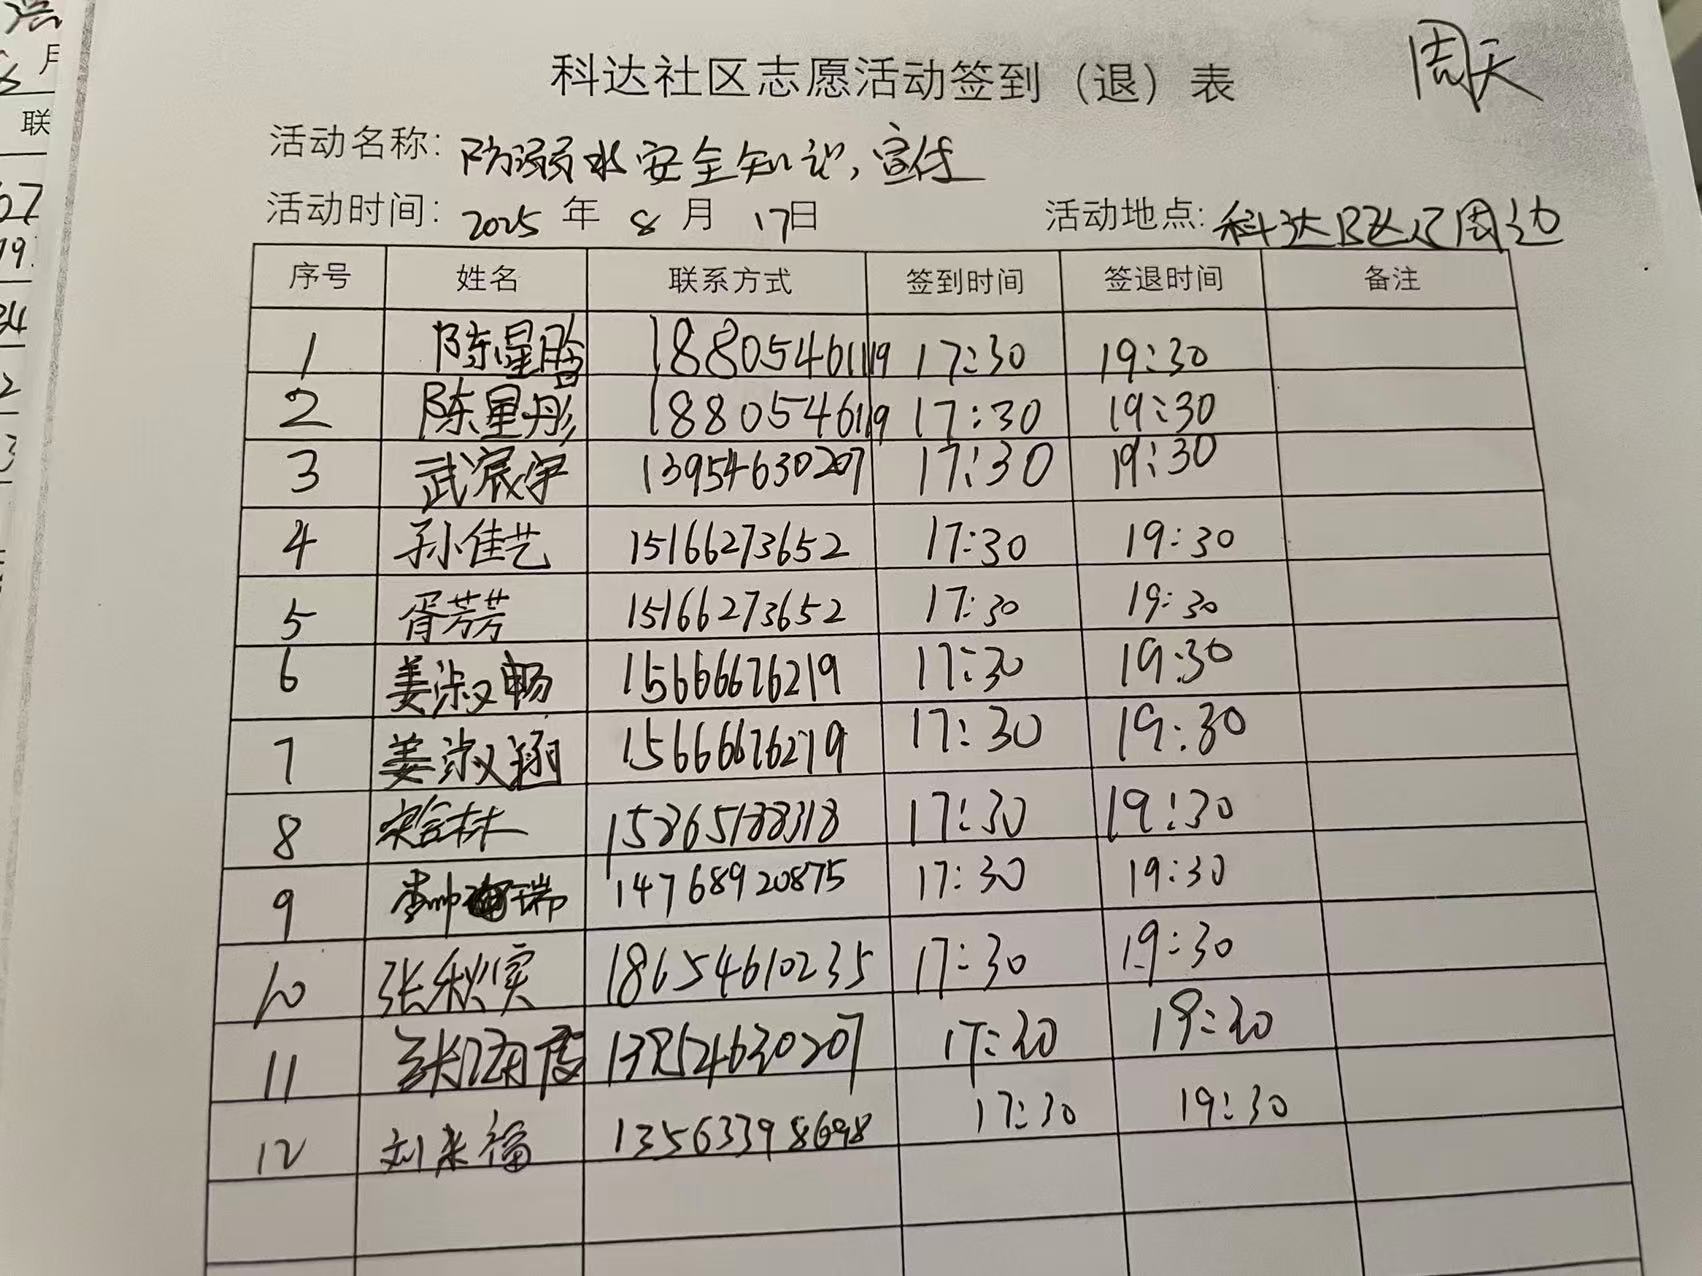 周天
科达社区志愿活动签到（退）表
活动名称：防溺水安全知识，宣传
活动时间：2025 年 8 月 17日 活动地点：科达社区周边
序号 姓名 联系方式 签到时间 签退时间 备注
1 陈星 18805461119 17:30 19:30
2 陈星彤 18805461119 17:30 19:30
3 武宸宇 13954630207 17:30 19:30
4 孙佳艺 15166273652 17:30 19:30
5 胥芳芳 15166273652 17:30 19:30
6 姜淑畅 15666676219 17:30 19:30
7 姜淑涵 15666676219 17:30 19:30
8 15865188318 17:30 19:30
9 李帅瑞 14768920875 17:30 19:30
10 张秋实 18654610235 17:30 19:30
11 13954630207 17:30 19:30
12 刘来福 13563398698 17:30 19:30